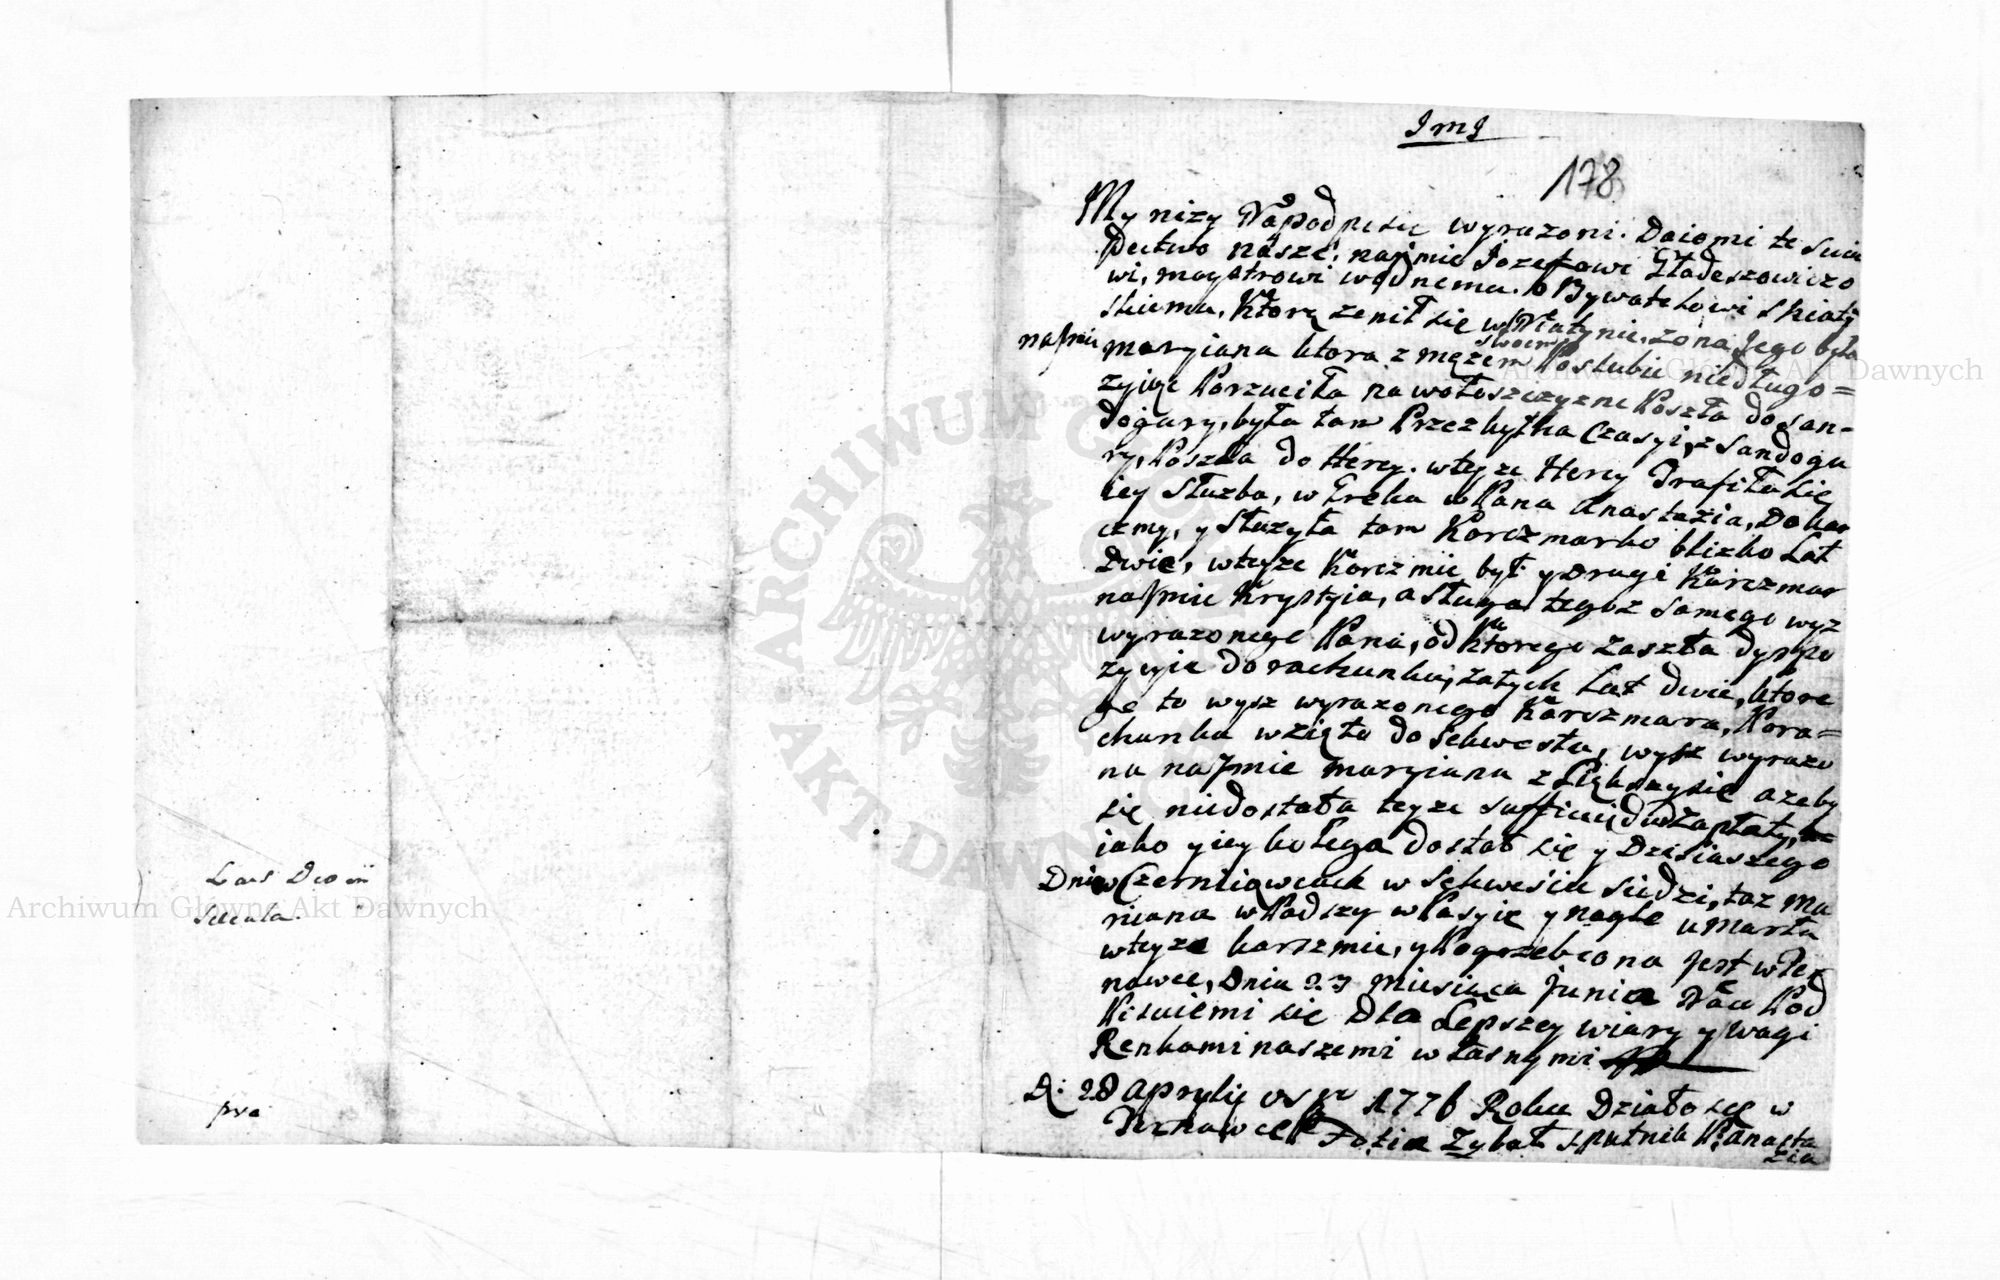 JmJ
178
My niży Na podpisie wyrazoni. Daiomi te swia
dectwo nasze, najmie Jozefowi Gładeszowiczo
wi, maystrowi wodnemu. o Bywatelowi skiaty
skiemu, Ktorą zenił się w śniatynie, zona Jego była
najmie maryiana ktora z męzem swoiem Poslubie niedługo=
zyiąc Porzuciła na wołoszczyzne Poszła do San=
dogury, była tam Przez kytka Czasyi, z Sandogu
ry, Poszła do Hercy. wteyze Hercy Trafiła się
iey Słuzba, w Greka w Pana Anastazia, Do kar
czmy, y Słuzyła tam Karczmarko blizko Lat
Dwie, wteyze Karczmie był y Drugi Karczmar
najmie Krystyia, a sługa tegoz Samego wyz
wyrazonego Pana, od Ktorego zaszła dyspo
zycyia do rachunku, za tych Lat dwie, ktore
go to wysz wyrazonego Karczmara, Po ra=
chunku wzięto do Sekwestu, wysz wyrazo
na najmie maryiana zlększy się azeby
się niedostała teyze
iako y iey kolega dostał się y Dzisiaszego
Dnia w Czerniowcach w Sekweście siedzi, taz Ma
riana wPadszy w Pasyię y nagle umarła
wteyze karczmie, y Pogrzebiona jest w Ter
nawce, Dnia 23 miesiąca Junia Na co Pod
Pisuiemi się Dla Lepszey wiary y wagi
Renkami naszemi własnymi
D: 28 Aprylij 1776 Roku Działo się w
Ternawce Tosia Zybał sputnik P. anasta
zia
pro